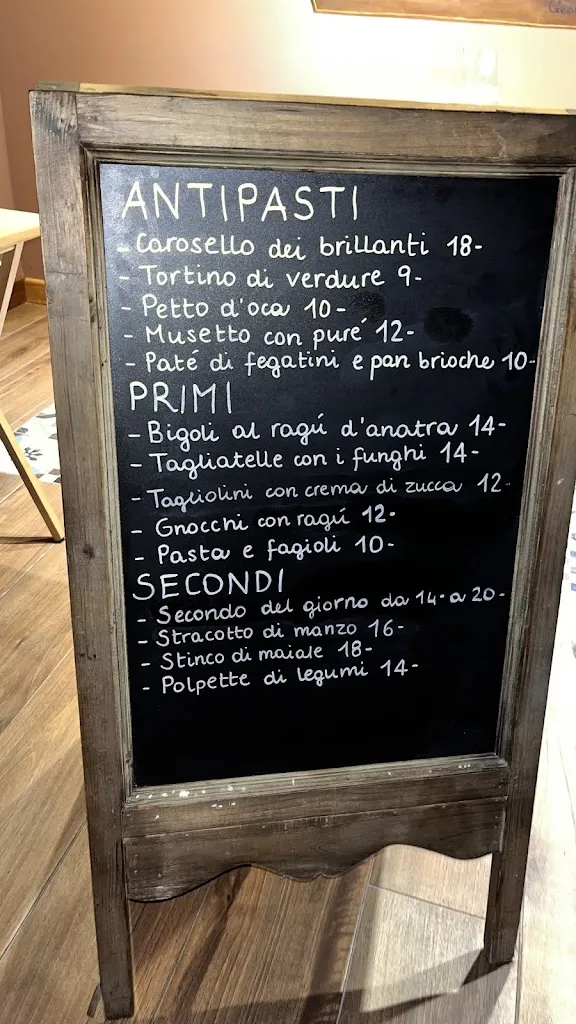 ANTIPASTI
- Carosello dei brillanti 18-
- Tortino di verdure 9-
- Petto d'oca 10-
- Musetto con puré 12-
- Paté di fegatini e pan brioche 10-
PRIMI
- Bigoli al ragú d'anatra 14-
- Tagliatelle con i funghi 14-
- Tagliolini con crema di zucca 12-
- Gnocchi con ragú 12-
- Pasta e fagioli 10-
SECONDI
- Secondo del giorno da 14- a 20-
- Stracotto di manzo 16-
- Stinco di maiale 18-
- Polpette di legumi 14-